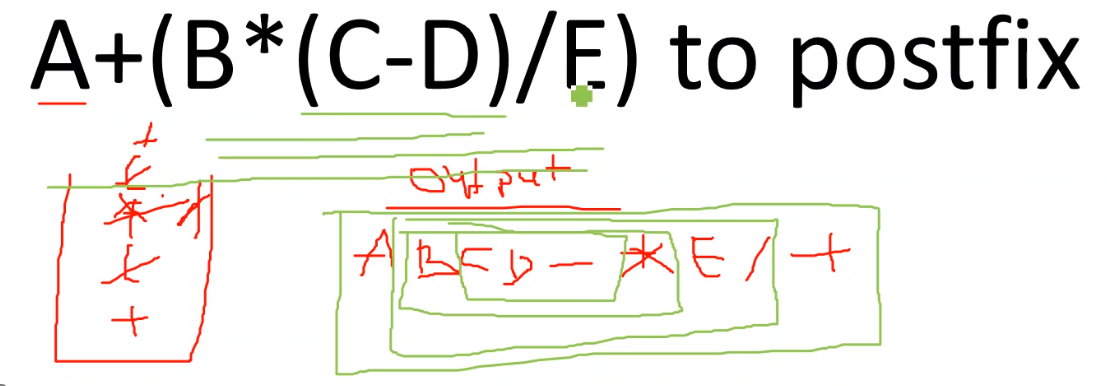 A+(B*(C-D)/E) to postfix
Output
A B C D - * E / +
*
+